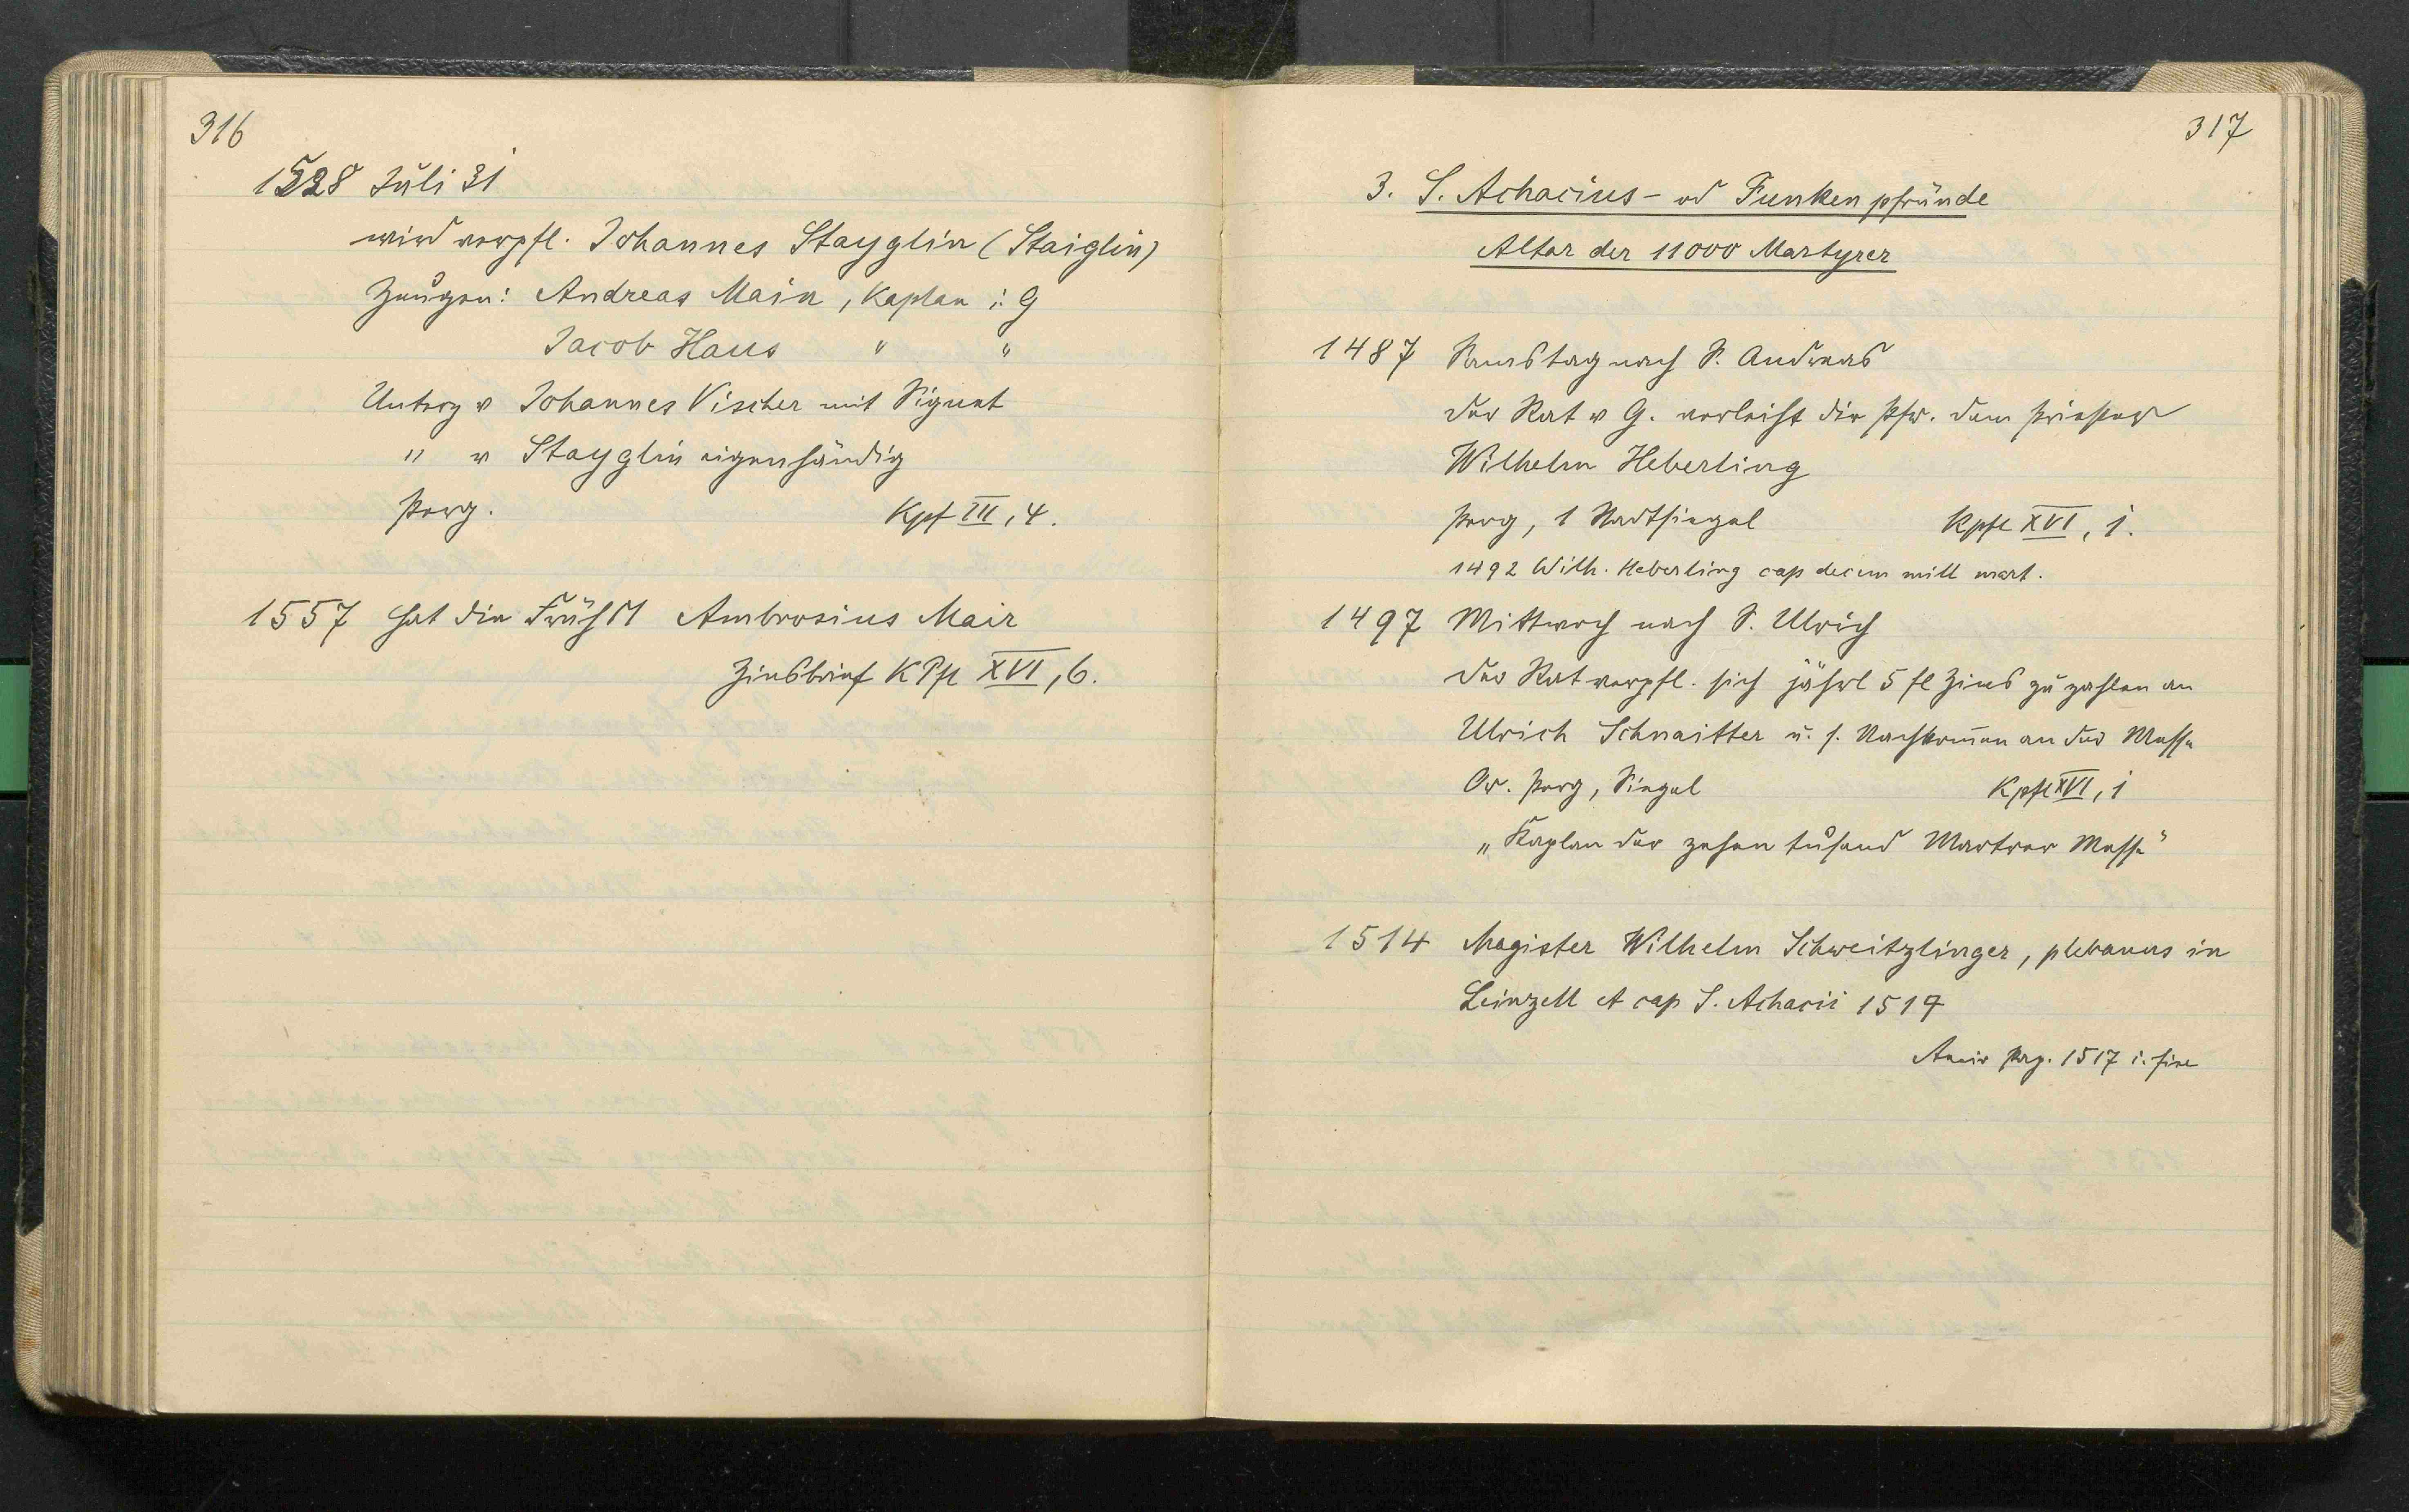 316
1528 Juli 31
wird verpfl. Johannes Stayglin (Staiglin)
Zeugen: Andreas Main, Kaplan i. G
Jacob Haus " "
Unterz v Johannes Vischer mit Signet
" v Stayglin eigenhändig
Perg. Kpf III, 4.
1557 hat die Frühm Ambrosius Mair
Zinsbrief KPfl XVI, 6.
317
3. S. Achacius- od Funkenpfründe
Altar der 11000 Martyrer
1487 Samstag nach S. Andreas
der Rat v G. verleiht die Pfr. dem Priester
Wilhelm Heberling
Perg, 1 Stadtsiegel Kpfl XVI, 1.
1492 Wilh. Heberling cap decem mill mart.
1497 Mittwoch nach S. Ulrich
Der Rat verpfl. sich jährl 5 fl Zins zu zahlen an
Ulrich Schnaitter u. s. Nachkom̄en an der Messe
Or. Perg, Siegel Kpfl XVI, 1
„Kaplan der zehen tusend Martrer Messe"
1514 Magister Wilhelm Schweitzlinger, plebanus in
Leinzell et cap S. Achacii
Perg. 1517 i. fine